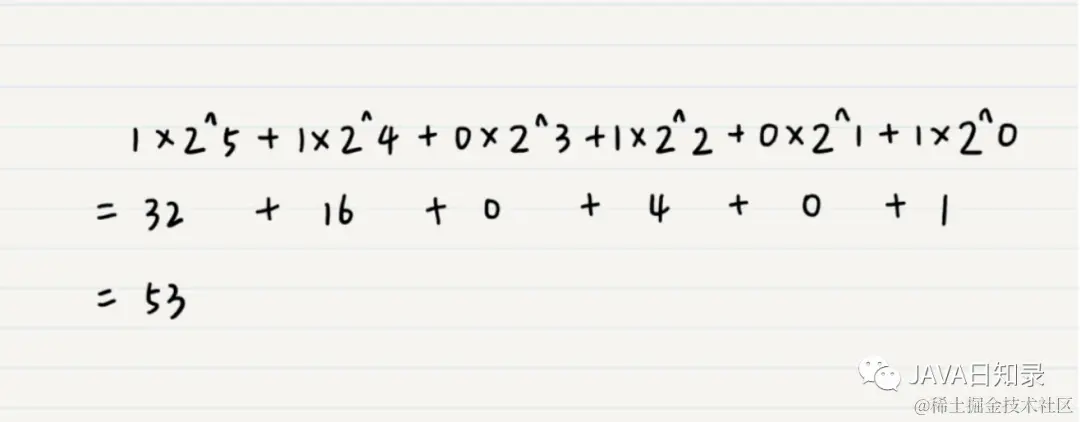 1×2^5 + 1×2^4 + 0×2^3 + 1×2^2 + 0×2^1 + 1×2^0
= 32 + 16 + 0 + 4 + 0 + 1
= 53
JAVA日知录
@稀土掘金技术社区